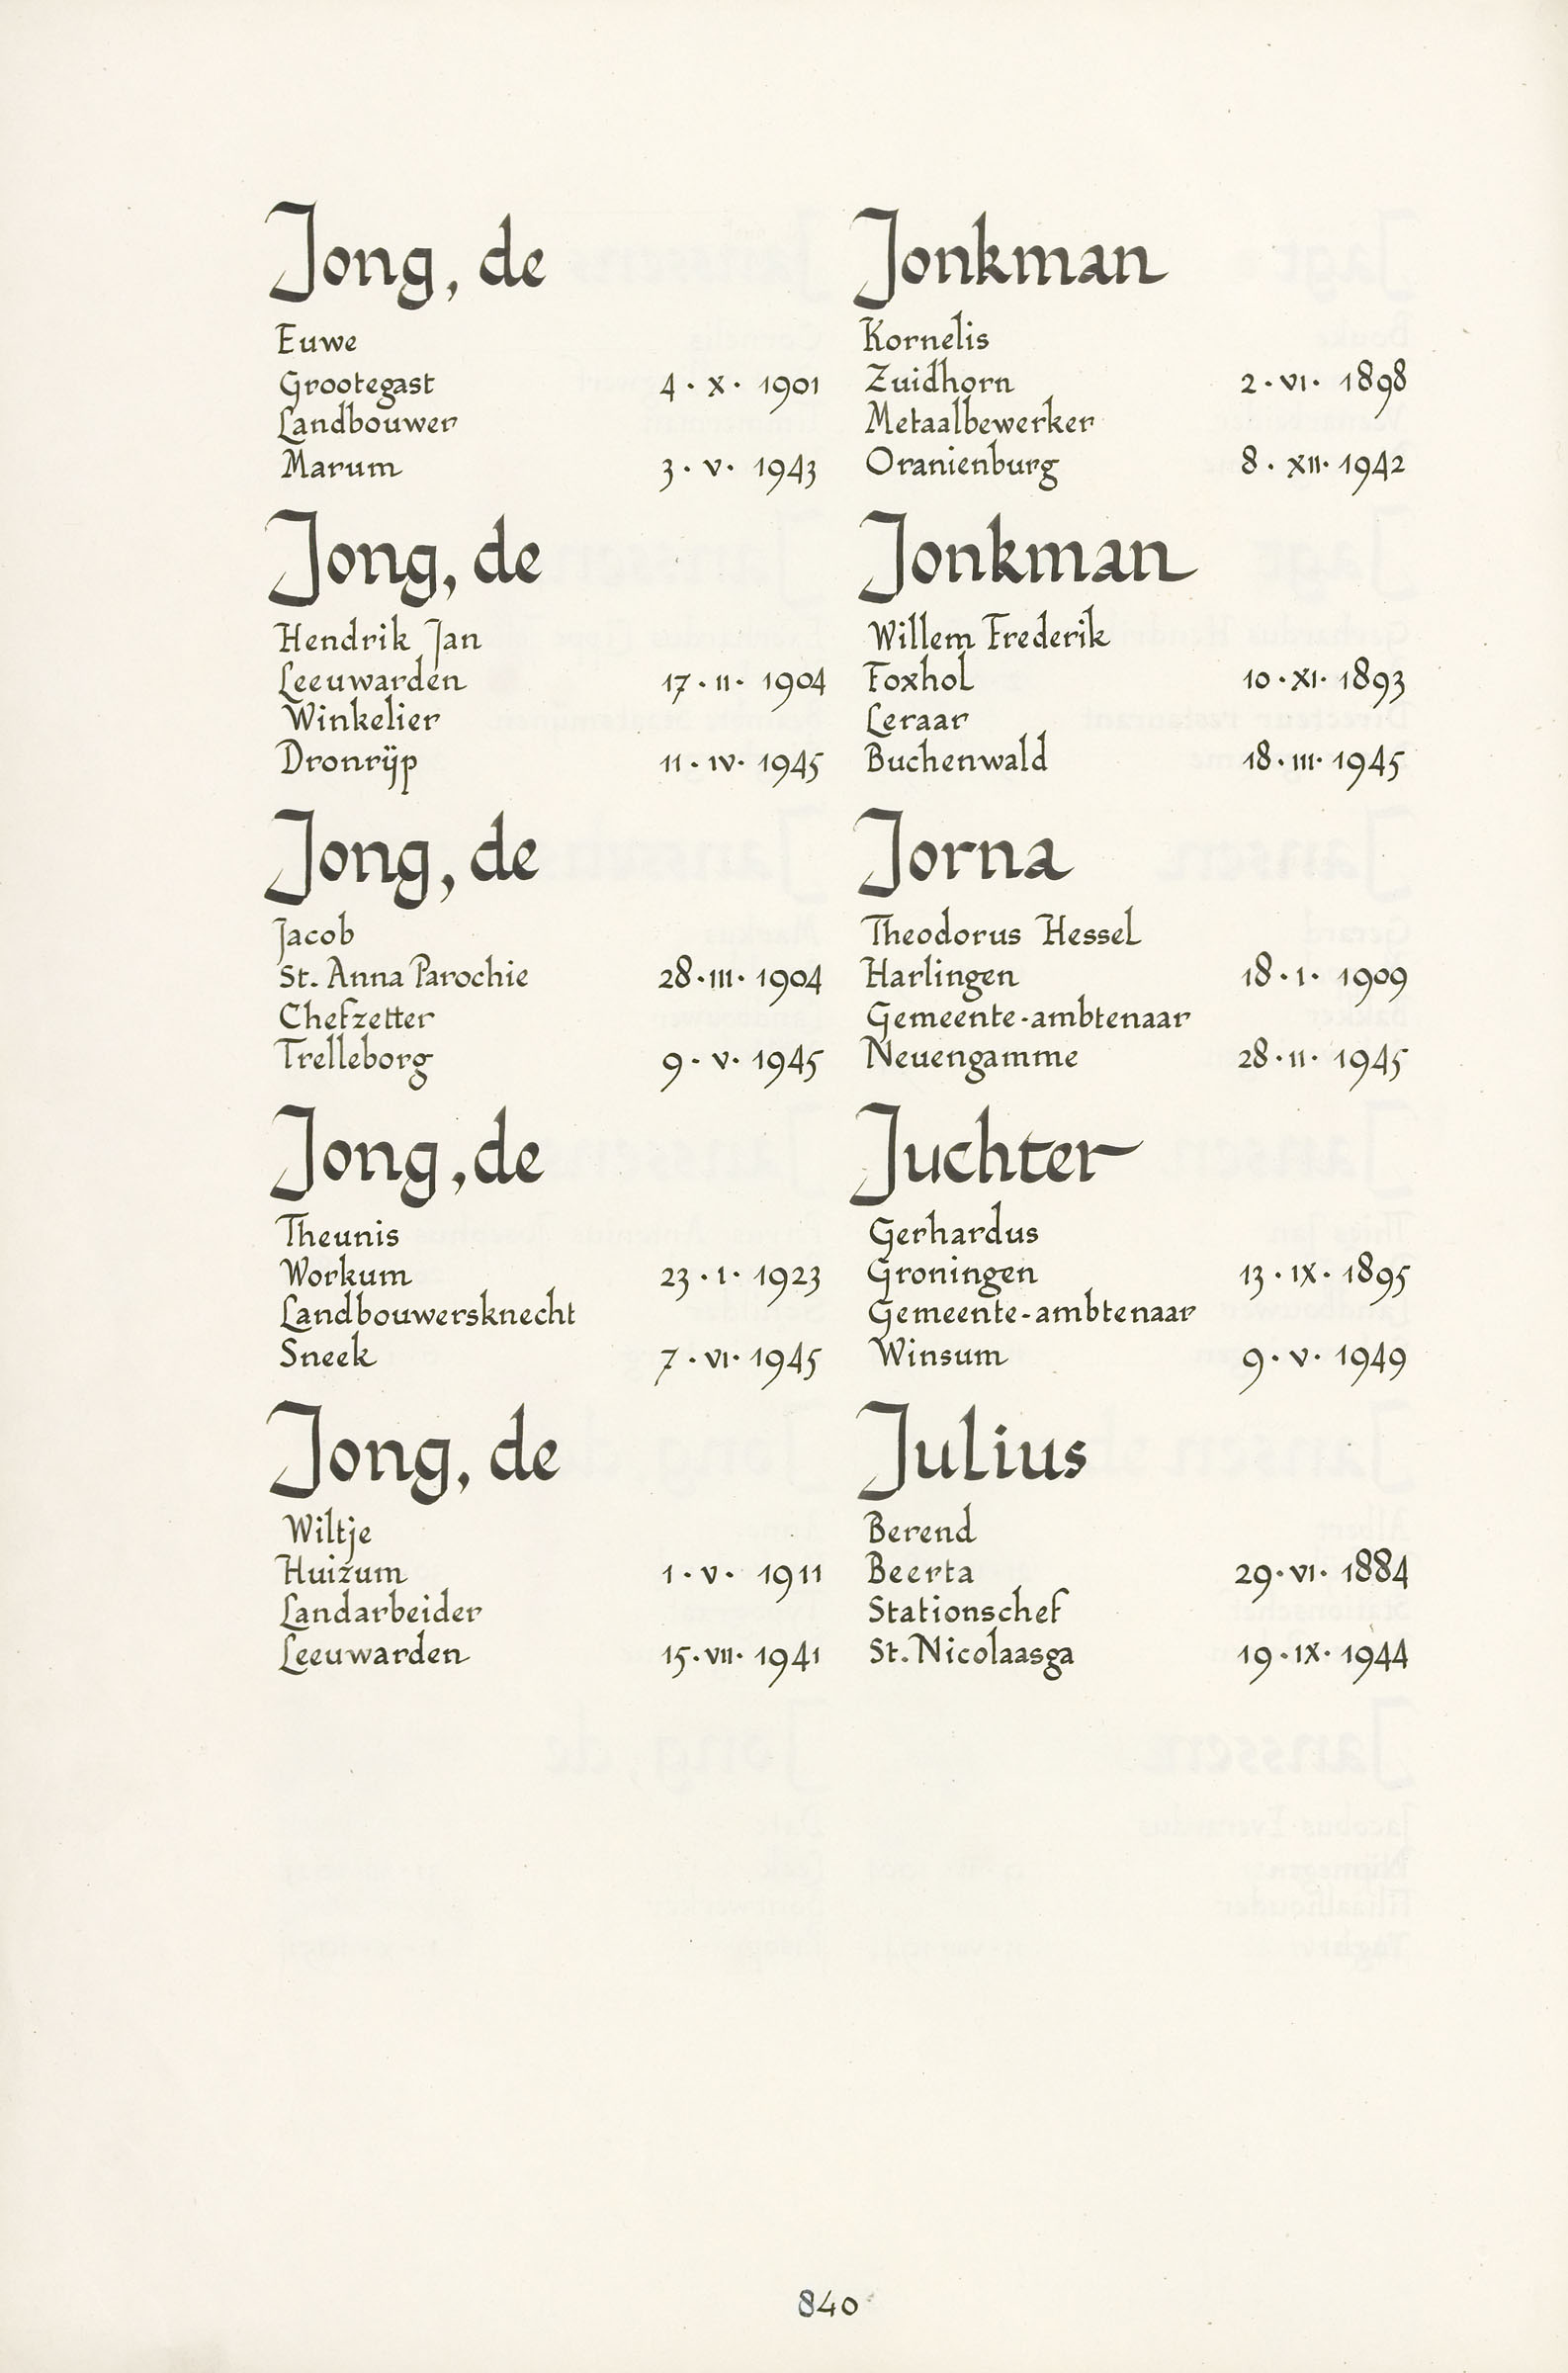 Jong, de
Euwe
Grootegast 4 · X · 1901
Landbouwer
Marum 3 · V · 1943
Jong, de
Hendrik Jan
Leeuwarden 17 · II · 1904
Winkelier
Dronrijp 11 · IV · 1945
Jong, de
Jacob
St. Anna Parochie 28 · III · 1904
Chefzetter
Trelleborg 9 · V · 1945
Jong, de
Theunis
Workum 23 · I · 1923
Landbouwersknecht
Sneek 7 · VI · 1945
Jong, de
Wiltje
Huizum 1 · V · 1911
Landarbeider
Leeuwarden 15 · VII · 1941
Jonkman
Kornelis
Zuidhorn 2 · VI · 1898
Metaalbewerker
Oranienburg 8 · XII · 1942
Jonkman
Willem Frederik
Foxhol 10 · XI · 1893
Leraar
Buchenwald 18 · III · 1945
Jorna
Theodorus Hessel
Harlingen 18 · I · 1909
Gemeente-ambtenaar
Neuengamme 28 · II · 1945
Juchter
Gerhardus
Groningen 13 · IX · 1895
Gemeente-ambtenaar
Winsum 9 · V · 1949
Julius
Berend
Beerta 29 · VI · 1884
Stationschef
St. Nicolaasga 19 · IX · 1944
840